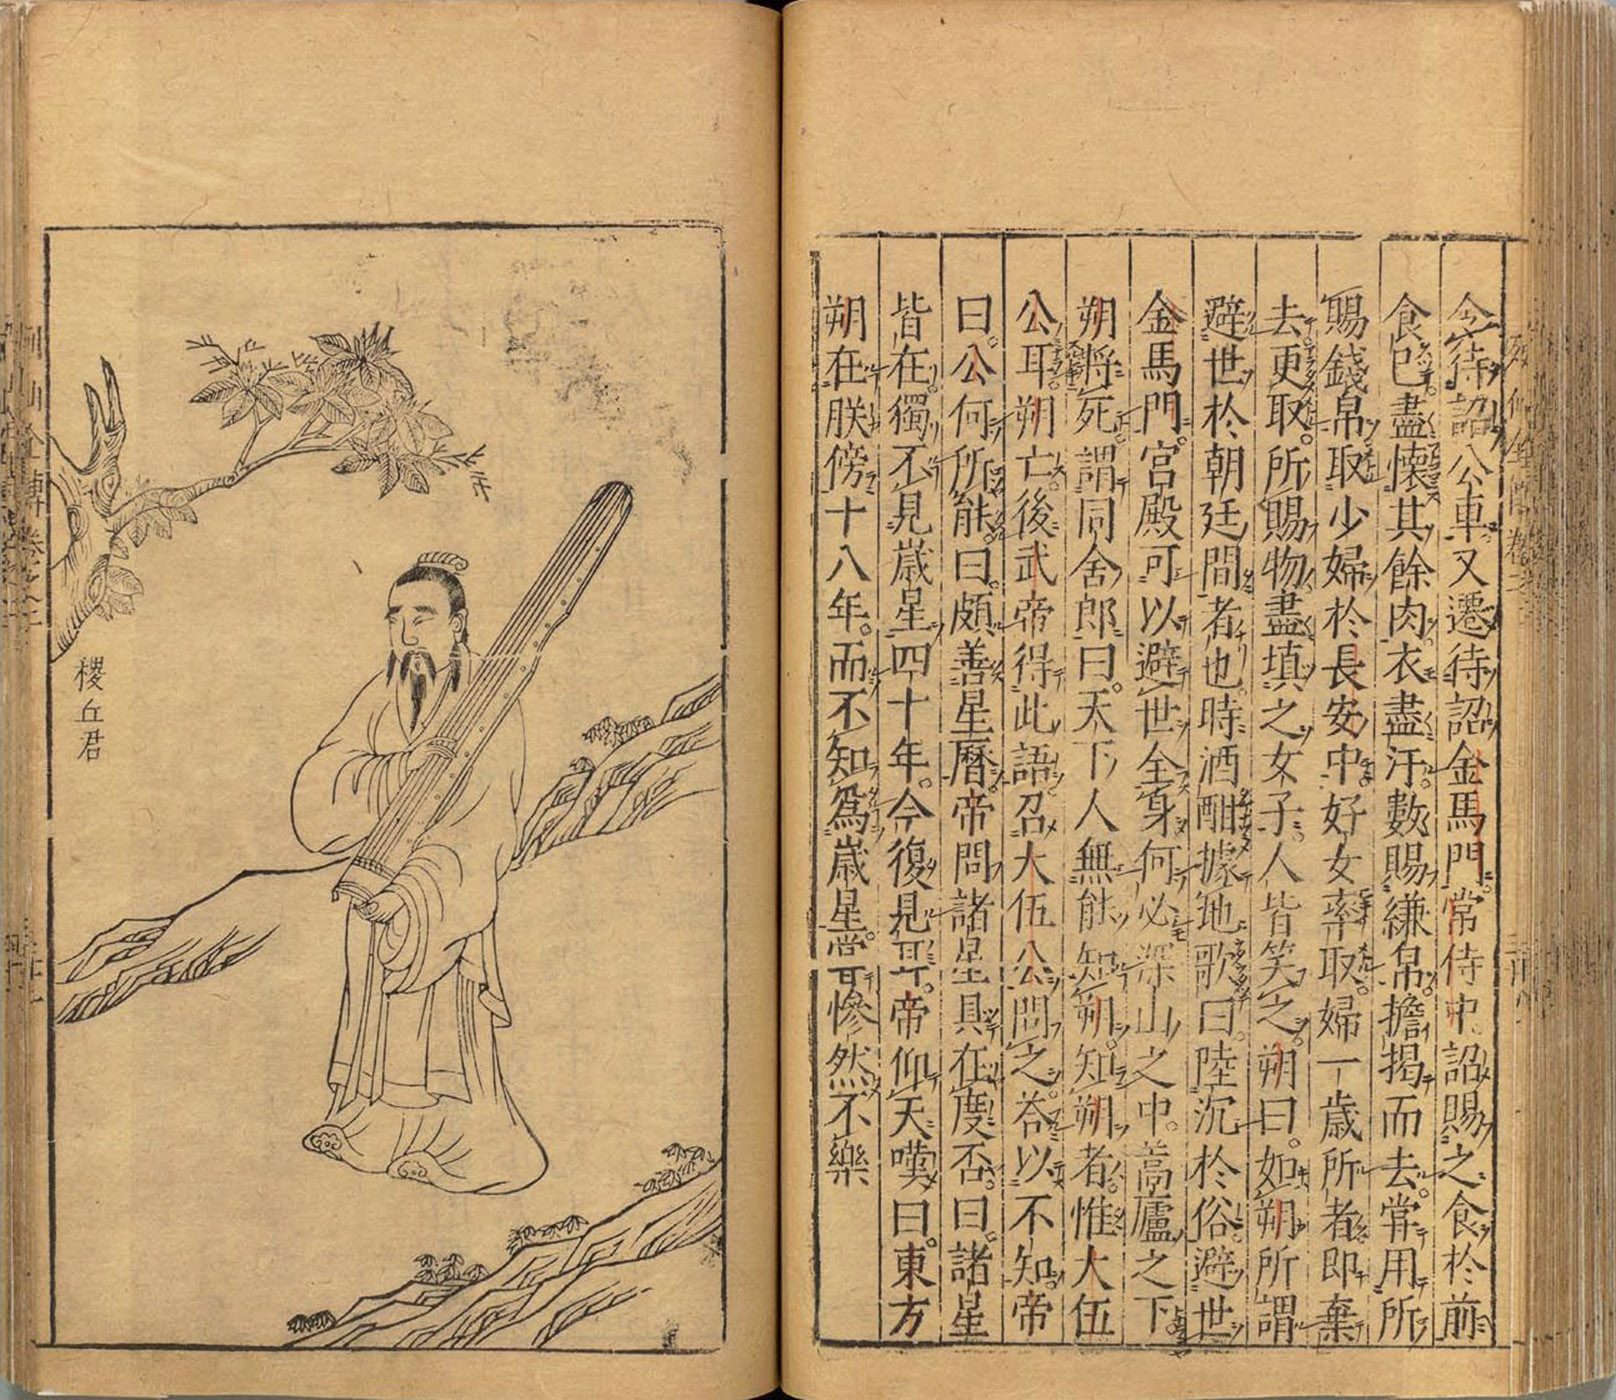 令待詔公車又遷待詔金馬門常侍中詔賜之食於前
食已盡懷其餘肉衣盡汙數賜縑帛擔揭而去常用所
賜錢帛取少婦於長安中好女率取婦一歲所者即棄
去更取所賜物盡填之女子人皆笑之朔曰如朔所謂
避世於朝廷間者也時酒酣據地歌曰陸沉於俗避世
金馬門宮殿可以避世全身何必深山之中蒿廬之下
朔將死謂同舍郎曰天下人無能知朔知朔者惟大伍
公耳朔亡後武帝得此語召大伍公問之答以不知帝
曰公何所能曰頗善星曆帝問諸星具在度否曰諸星
皆在獨不見歲星四十年今復見耳帝仰天嘆曰東方
朔在朕傍十八年而不知爲歲星當可慘然不樂
稷丘君